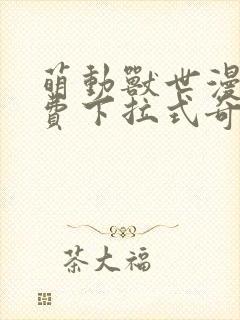 萌動獸世漫
費下拉式奇
茶大福